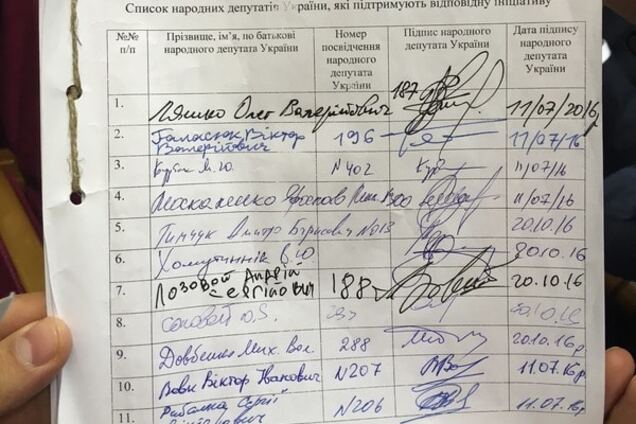 Список народних депутатів України, які підтримують відповідну ініціативу
№№ п/п
Прізвище, ім’я, по батькові народного депутата України
Номер посвідчення народного депутата України
Підпис народного депутата України
Дата підпису народного депутата України
1. Ляшко Олег Валерійович 187 11/07/2016р
2. Галасюк Віктор Валерійович 196 11/07/16
3. М. Ю. N 402 11/07/16
4. 11/07/16
5. Тимчук Дмитро Борисович №013 20.10.16
6. Хомутиннік В. Ю 20.10.16
7. Лозовой Андрій Сергійович 188 20.10.16
8. 20.10.16
9. Довбенко Мих. Вол. 288 20.10.16р
10. Вовк Віктор Іванович N207 11.07.16р
11. Рибалка Сергій Вікторович N206 11.07.16